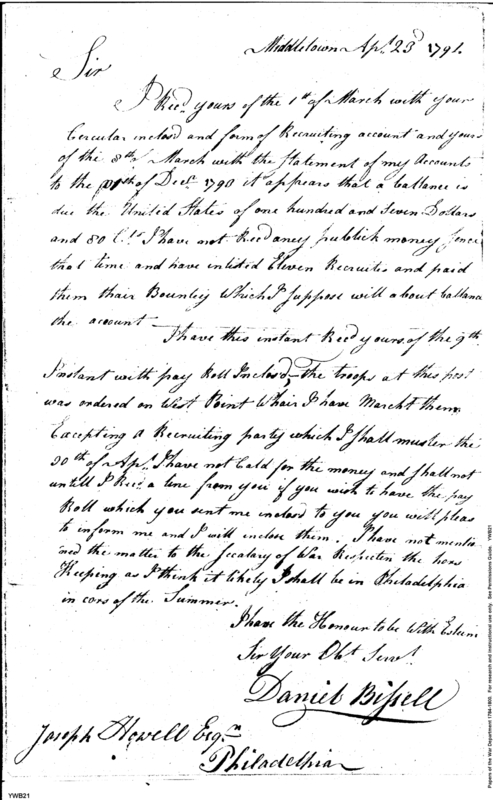 Middletown Apl. 23d 1791.
Sir
I Recd. yours of the 1st of March with your
Circular inclosd and form of Recruiting account and yours
of the 8th of March with the Statement of my Accounts
to the of Decr. 1790 it appears that a ballance is
due the United States of one hundred and Seven Dollars
and 80 Cts. I have not Recd aney publick money sence
that time and have inlisted Eleven Recruites and paid
them thair Bountey Which I suppose will about ballance
the account —
I have this instant Recd yours of the 9th.
Instant with pay Roll Inclosd, The troops at this post
was ordered on West Point Whair I have Marcht them
Excepting a Recruiting party which I shall muster the
30th of Apl. I have not Cald for the money and shall not
untill I Rec. a line from you if you wish to have the pay
Roll which you sent me inclosd to you you will pleas
to inform me and I will inclose them. I have not mentio
ned the matter to the Secatary of War Respecten the hors
Keeping as I think it likely I shall be in Philadelphia
in cors of the Summer.
I have the Honour to be With Esteem
Sir Your Obt. Servt.
Daniel Bissell
Joseph Howell Esqr.
Philadelphia
YWB21
Papers of the War Department 1784-1800. For research and instructional use only. See Permissions Guide. YWB21